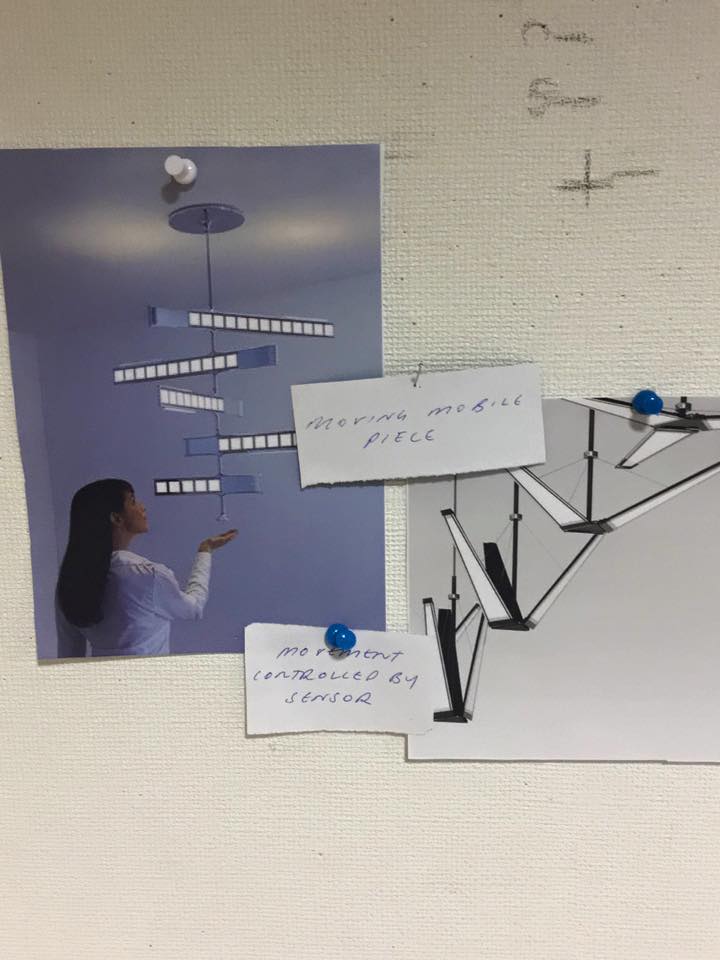 MOVING MOBILE
PIECE
MOVEMENT
CONTROLLED BY
SENSOR